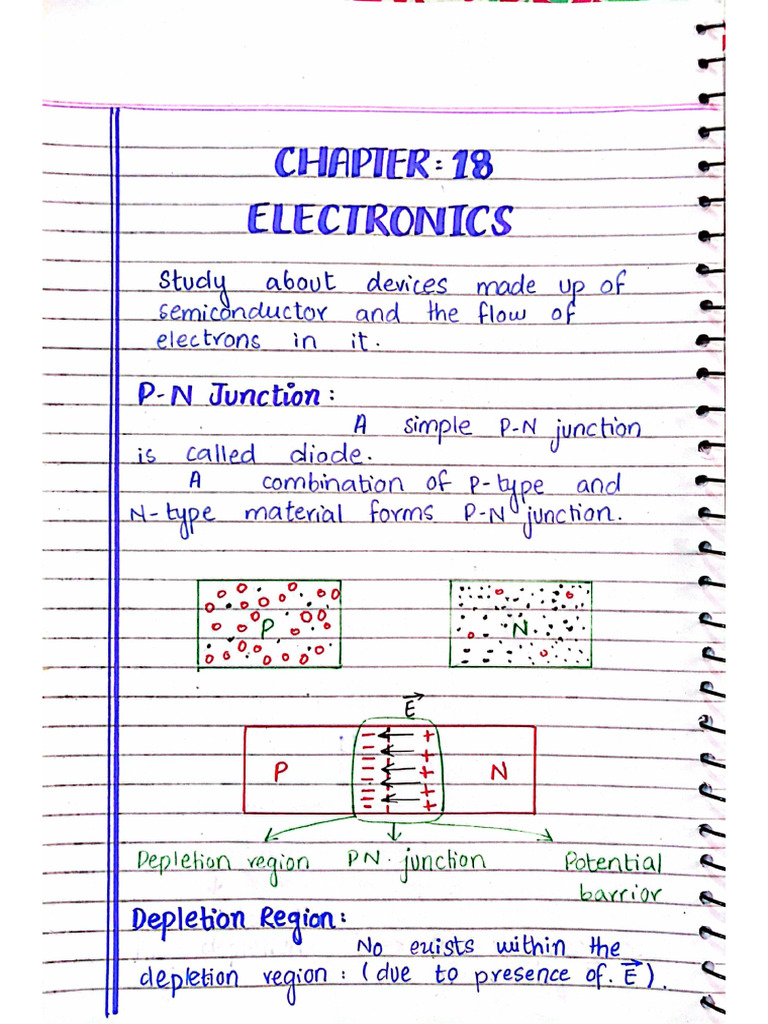 CHAPTER: 18
ELECTRONICS
Study about devices made up of
semiconductor and the flow of
electrons in it.
P-N Junction:
A simple P-N junction
is called diode.
A combination of P-type and
N-type material forms P-N junction.
P N
E
P N
Depletion region PN junction Potential
barrier
Depletion Region:
No exists within the
depletion region: (due to presence of. E).